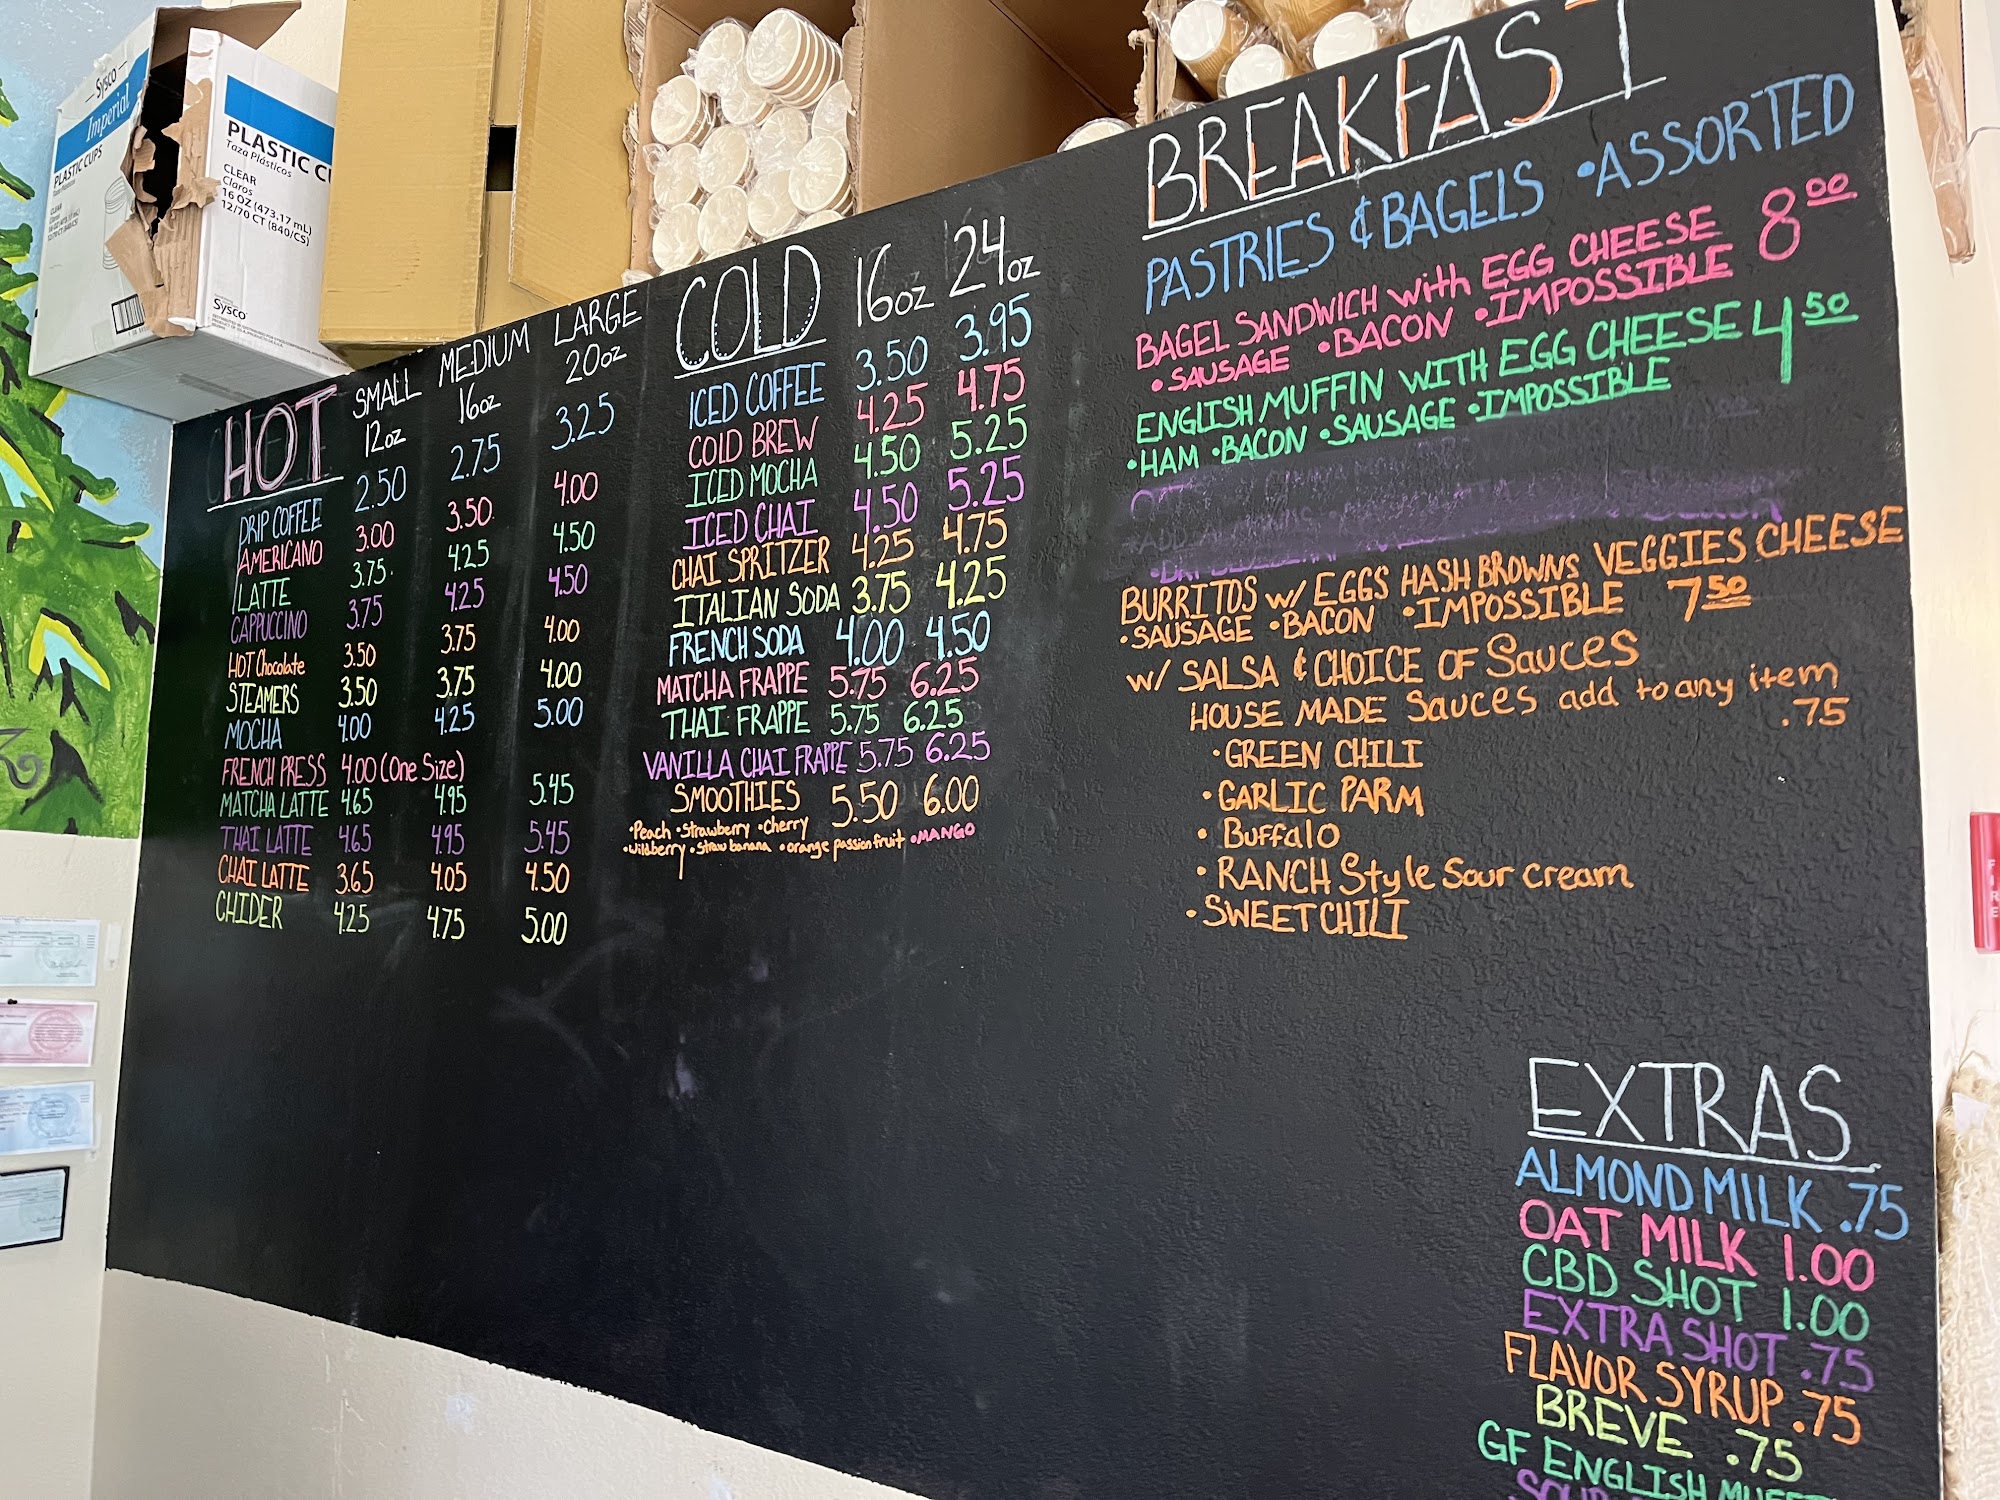 Sysco
Imperial
PLASTIC CUPS
PLASTIC C
Taza Plásticos
CLEAR
Claros
16 OZ (473.17 mL)
12/70 CT (840/CS)
Sysco
HOT SMALL MEDIUM LARGE
12oz 16oz 20oz
DRIP COFFEE 2.50 2.75 3.25
AMERICANO 3.00 3.50 4.00
LATTE 3.75 4.25 4.50
CAPPUCCINO 3.75 4.25 4.50
HOT Chocolate 3.50 3.75 4.00
STEAMERS 3.50 3.75 4.00
MOCHA 4.00 4.25 5.00
FRENCH PRESS 4.00 (One Size)
MATCHA LATTE 4.65 4.95 5.45
THAI LATTE 4.65 4.95 5.45
CHAI LATTE 3.65 4.05 4.50
CHIDER 4.25 4.75 5.00
COLD 16oz 24oz
ICED COFFEE 3.50 3.95
COLD BREW 4.25 4.75
ICED MOCHA 4.50 5.25
ICED CHAI 4.50 5.25
CHAI SPRITZER 4.25 4.75
ITALIAN SODA 3.75 4.25
FRENCH SODA 4.00 4.50
MATCHA FRAPPE 5.75 6.25
THAI FRAPPE 5.75 6.25
VANILLA CHAI FRAPPE 5.75 6.25
SMOOTHIES 5.50 6.00
•Peach •Strawberry •Cherry
•wildberry •straw banana •orange passion fruit •MANGO
BREAKFAST
PASTRIES & BAGELS •ASSORTED
BAGEL SANDWICH with EGG CHEESE 8.00
•SAUSAGE •BACON •IMPOSSIBLE
ENGLISH MUFFIN WITH EGG CHEESE 4.50
•HAM •BACON •SAUSAGE •IMPOSSIBLE
BURRITOS w/ EGGS HASH BROWNS VEGGIES CHEESE
•SAUSAGE •BACON •IMPOSSIBLE 7.50
w/ SALSA & CHOICE OF Sauces
HOUSE MADE Sauces add to any item
.75
•GREEN CHILI
•GARLIC PARM
•Buffalo
•RANCH Style Sour cream
•SWEET CHILI
EXTRAS
ALMOND MILK .75
OAT MILK 1.00
CBD SHOT 1.00
EXTRA SHOT .75
FLAVOR SYRUP .75
BREVE .75
GF ENGLISH